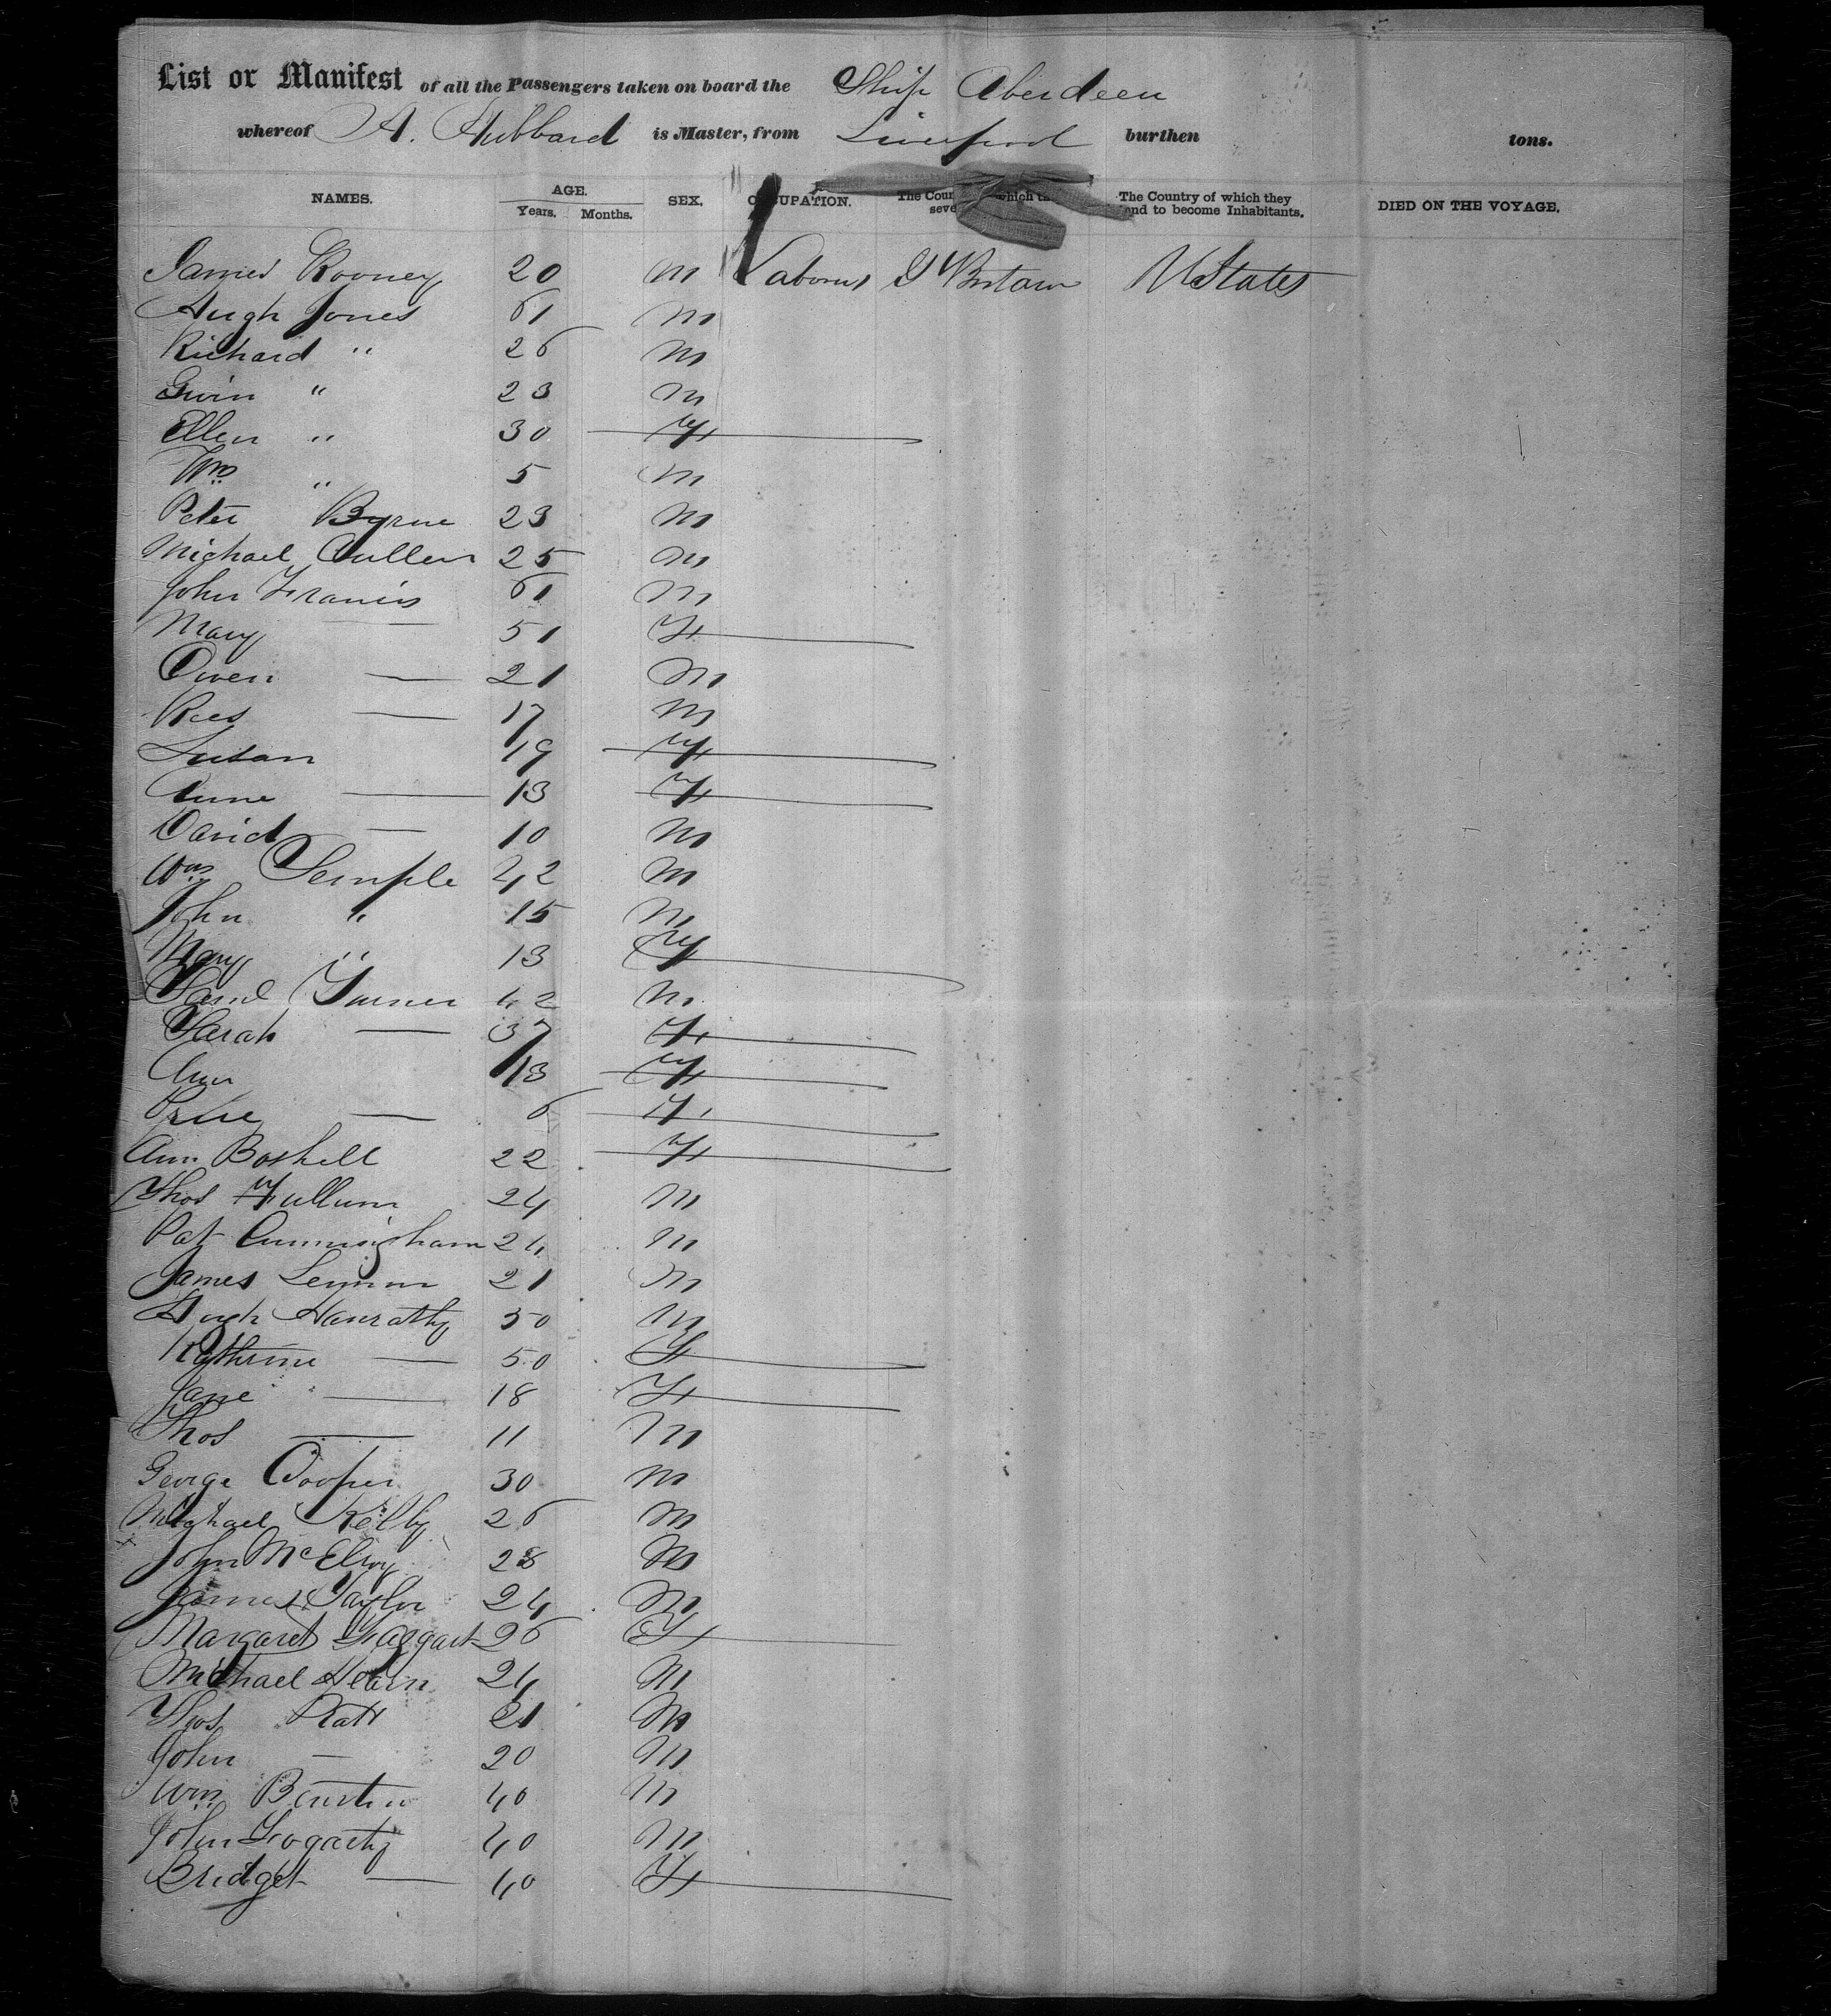 List or Manifest of all the Passengers taken on board the Ship Aberdeen
whereof A. Hubbard is Master, from Liverpool burthen tons.
NAMES. AGE. Years. Months. SEX. OCCUPATION. The Coun which th seve The Country of which they end to become Inhabitants. DIED ON THE VOYAGE.
James Rooney 20 M Laborer G Britain U States
Hugh Jones 61 M
Richard " 26 M
Gwin " 23 M
Ellen " 30 F
Wm " 5 M
Peter Byrne 23 M
Michael Cullen 25 M
John Francis 61 M
Mary — 51 F
Owen — 21 M
Rees — 17 M
Susan 19 F
Anne — 13 F
David — 10 M
Wm Semple 42 M
John " 15 M
Mary " 13 F
Saml Turner 42 M
Sarah — 37 F
Ann 13 F
— 6 F
Ann Boshell 22 F
Thos Fullum 24 M
Pat Cunningham 24 M
James 21 M
Hugh Hanratty 50 M
Kathrine — 50 F
Jane — 18 F
Thos — 11 M
George Cooper 30 M
Michael Kelly 26 M
John McElroy 28 M
James Taylor 24 M
Margaret 26 F
Michael 24 M
Thos Platt 21 M
John — 20 M
Wm 40 M
John Gogarty 40 M
Bridget — 40 F